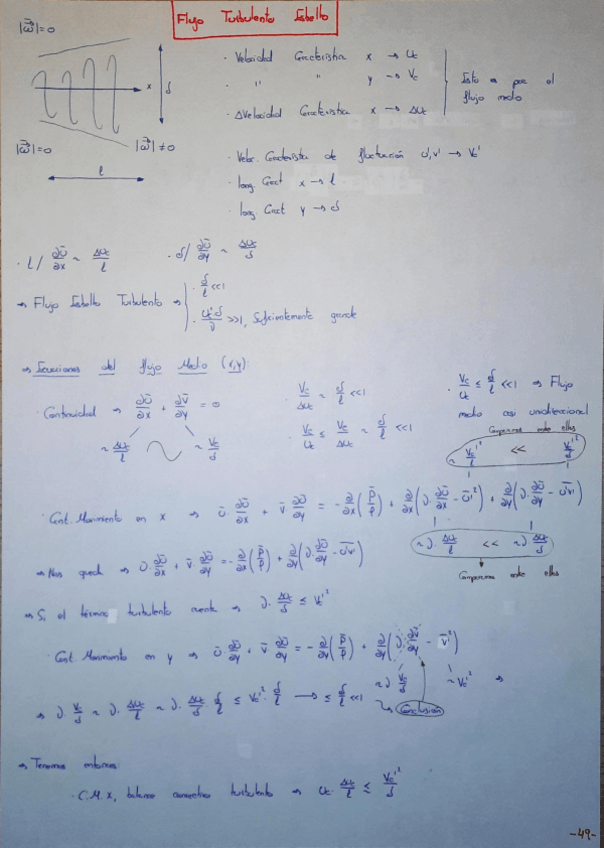 Flujo Turbulento Esbelto
|ω⃗|=0
x
δ
|ω⃗|=0
|ω⃗|≠0
l
· Velocidad Característica x → Uc
· " " y → Vc
· ΔVelocidad Característica x → ΔUc
Esto es por el
flujo medio
· Veloc. Característica de fluctuación u',v' → Vc'
· long. Caract x → l
· long. Caract y → δ
· l/ ∂Ū/∂x ~ ΔUc/l · δ/ ∂Ū/∂y ~ ΔUc/δ
⇒ Flujo Esbelto Turbulento ⇒ · δ/l <<1
· Uc'δ/ν >>1, Suficientemente grande
⇒ Ecuaciones del flujo Medio (x,y):
· Continuidad ⇒ ∂Ū/∂x + ∂V̄/∂y = 0
~ ΔUc/l ~ Vc/δ
· Vc/ΔUc ~ δ/l <<1
· Vc/Uc ≤ Vc/ΔUc ~ δ/l <<1
· Vc/Uc ≤ δ/l <<1 ⇒ Flujo
medio casi unidireccional
Comparamos entre ellos
~ Vc'²/l << Vc'²/δ
· Cant. Movimiento en x ⇒ Ū ∂Ū/∂x + V̄ ∂Ū/∂y = -∂/∂x(P̄/ρ) + ∂/∂x(ν ∂Ū/∂x - Ū'²) + ∂/∂y(ν ∂Ū/∂y - U'V')
~ν·ΔUc/l << ~ν ΔUc/δ
Comparamos entre ellos
⇒ Nos queda ⇒ Ū·∂Ū/∂x + V̄·∂Ū/∂y = -∂/∂x(P̄/ρ) + ∂/∂y(ν·∂Ū/∂y - U'V')
⇒ Si el término turbulento cuenta ⇒ ν·ΔUc/δ ≤ Vc'²
· Cant. Movimiento en y ⇒ Ū ∂V̄/∂x + V̄ ∂V̄/∂y = -∂/∂y(P̄/ρ) + ∂/∂y(ν·∂V̄/∂y - V̄'²)
~ν Vc/δ ~Vc'² ⇒
⇒ ν·Vc/δ ~ ν·ΔUc/l ~ ν·ΔUc/δ δ/l ≤ Vc'²·δ/l → ≤ δ/l <<1
Conclusión
⇒ Tenemos entonces:
· C.M.x, balance convectivo turbulento ⇒ Uc·ΔUc/l ≤ Vc'²/δ
-49-